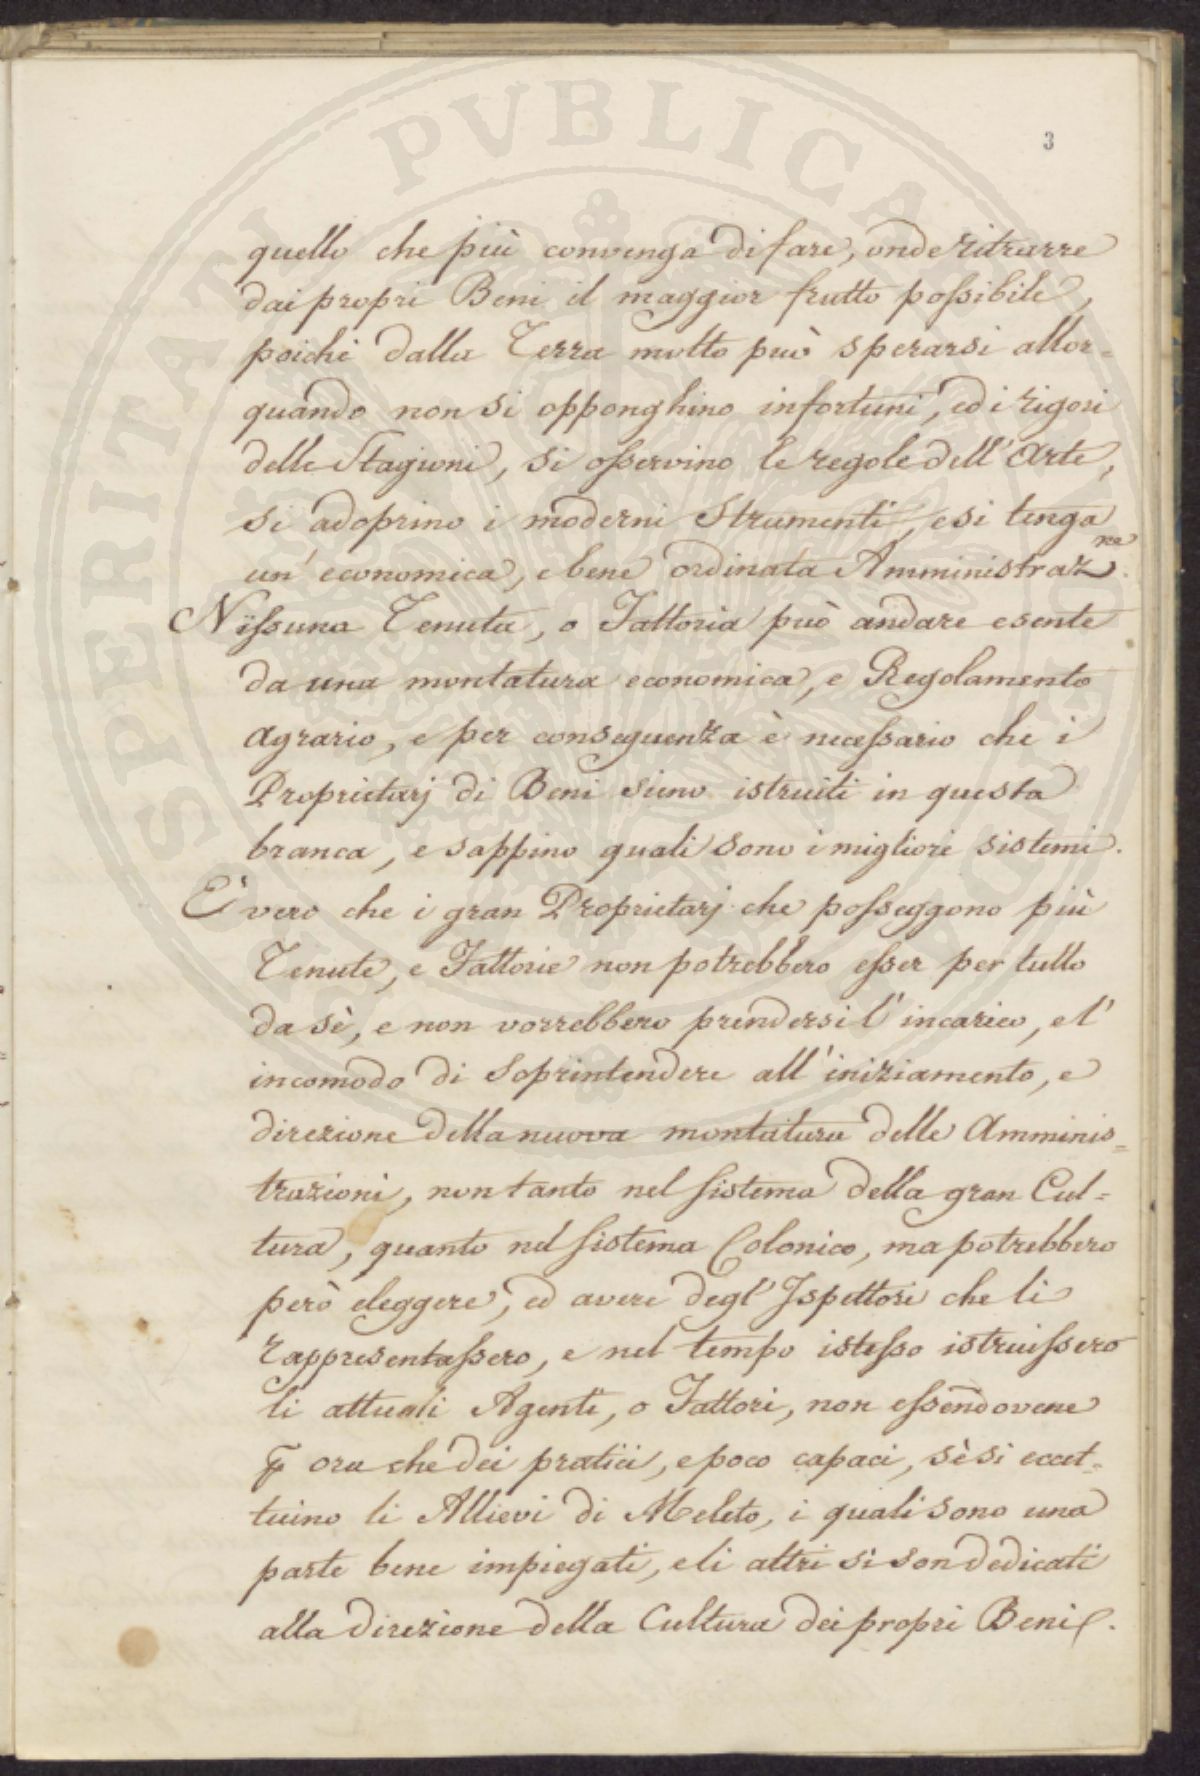 3
quello che più convenga di fare, onde ritrarre
dai propri Beni il maggior frutto possibile,
poichè dalla Terra molto può sperarsi allor=
quando non si opponghino infortuni, ed i rigori
delle Stagioni, si osservino le regole dell'Arte,
si adoprino i moderni Strumenti, e si tenga
un'economica, e bene ordinata Amministraz.ne
Nissuna Tenuta, o Fattoria può andare esente
da una montatura economica, e Regolamento
agrario, e per conseguenza è necessario che i
Proprietarj di Beni sieno istruiti in questa
branca, e sappino quali sono i migliori sistemi.
È vero che i gran Proprietarj che posseggono più
Tenute, e Fattorie non potrebbero esser per tutto
da sè, e non vorrebbero prendersi l'incarico, e l'
incomodo di soprintendere all'iniziamento, e
direzione della nuova montatura delle Amminis=
trazioni, non tanto nel sistema della gran Cul=
tura, quanto nel sistema Colonico, ma potrebbero
però eleggere, ed avere degl'Ispettori che li
rappresentassero, e nel tempo istesso istruissero
li attuali Agenti, o Fattori, non essendovene
p ora che dei pratici, e poco capaci, sè si eccet=
tuino li Allievi di Meleto, i quali sono una
parte bene impiegati, e li altri si son dedicati
alla direzione della Cultura dei propri Beni.
PROSPERITATI PVBLICAE AVGENDAE